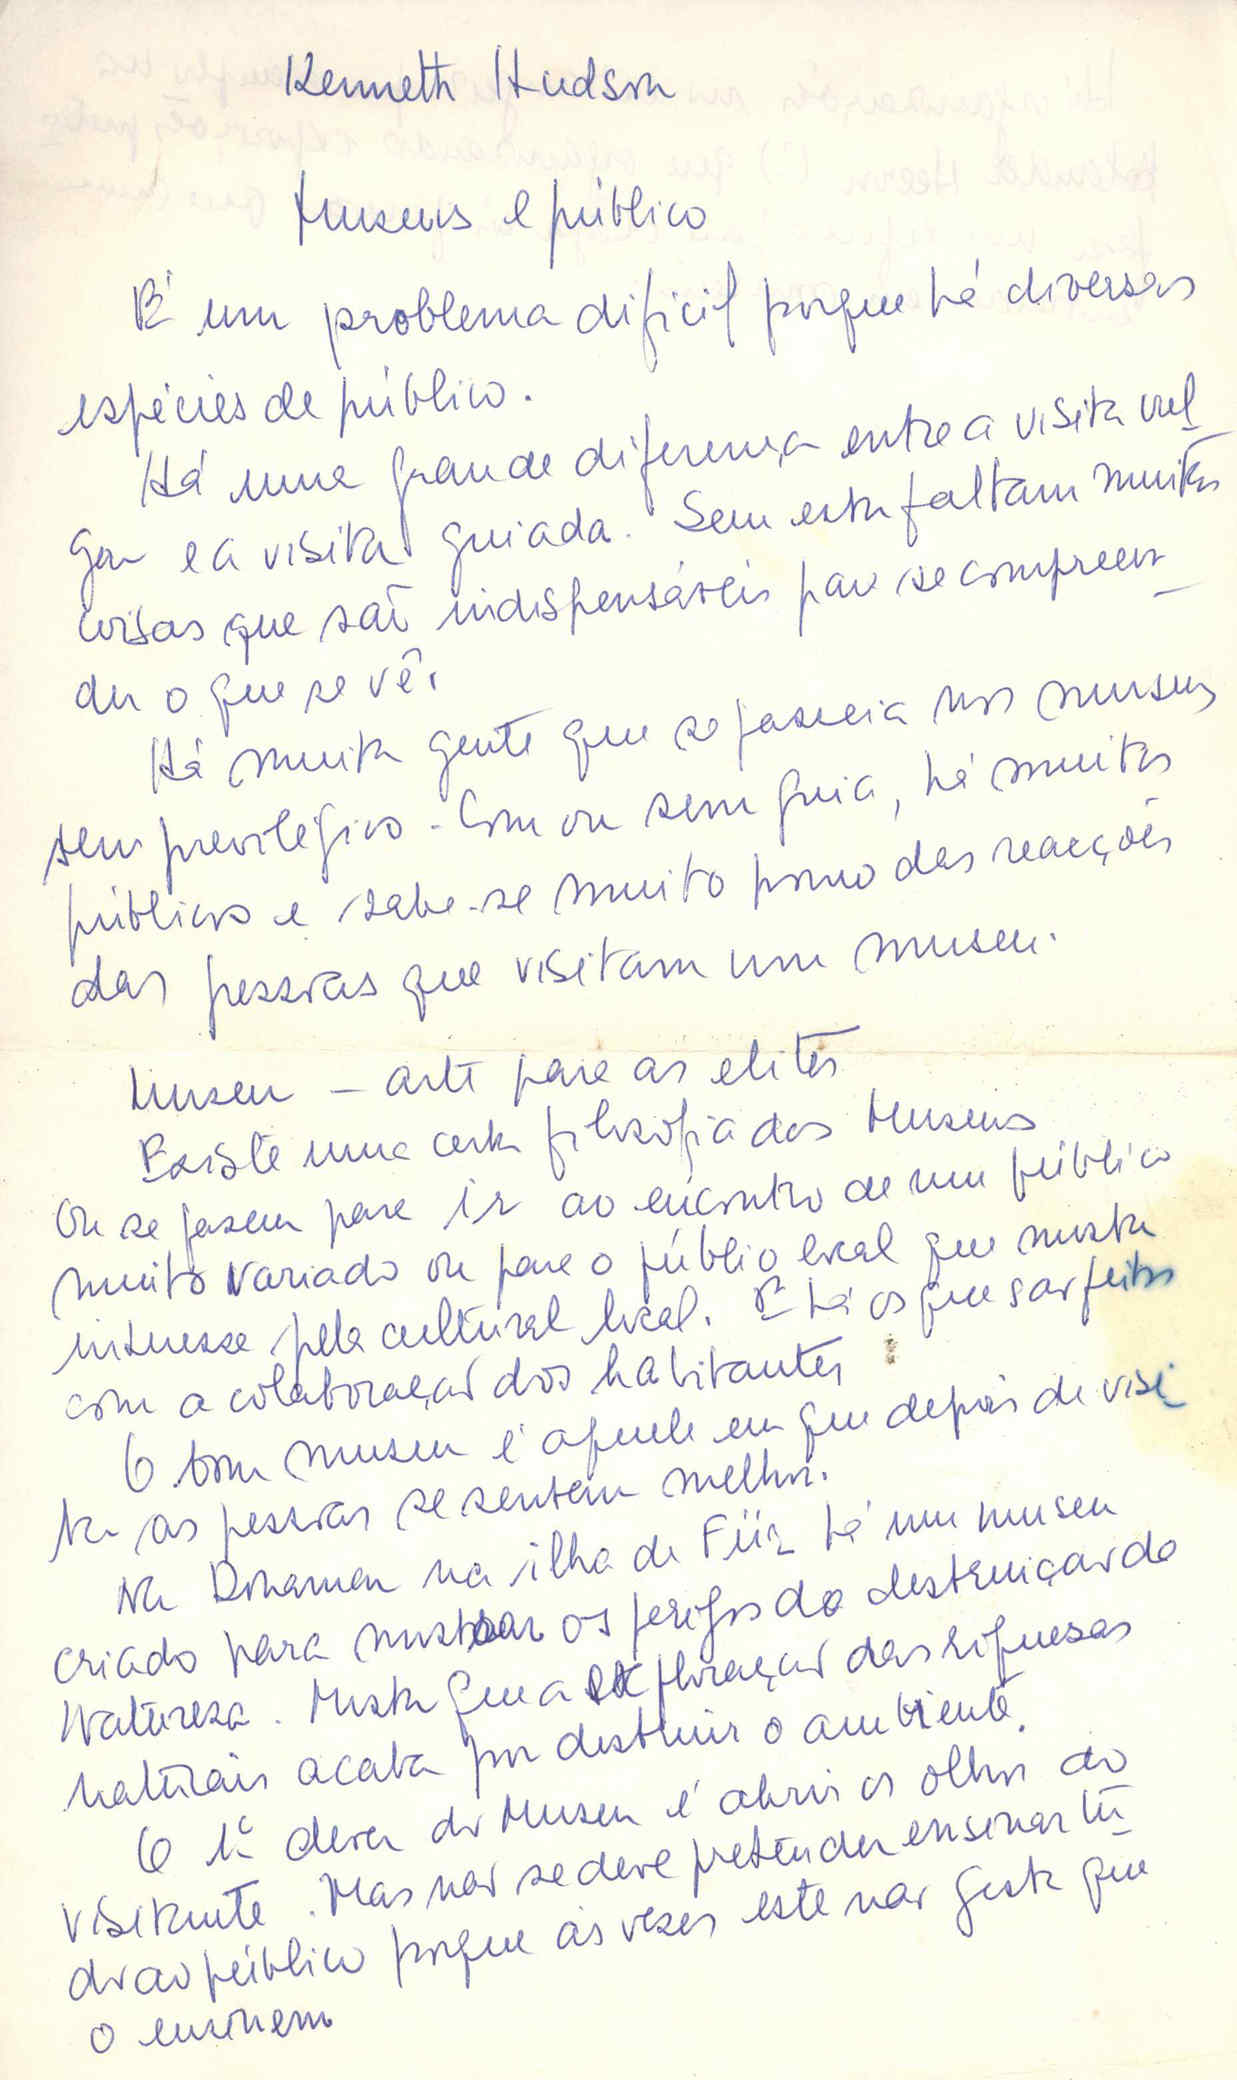 Kenneth Hudson
Museus e público
É um problema difícil porque há diversas
espécies de público.
Há uma grande diferença entre a visita vul_
gar e a visita guiada. Sem esta faltam muitas
coisas que são indispensáveis para se compreen_
der o que se vê.
Há muita gente que se passeia nos museus
sem previlégios. Com ou sem guia, há muitos
públicos e sabe-se muito pouco das reacções
das pessoas que visitam um museu.
Museu – arte para as elites
Existe uma certa filosofia dos Museus
Ou se fazem para ir ao encontro de um público
muito variado ou para o públio local que mostra
interesse pela cultural local. E há os que são feitos
com a colaboração dos habitantes
O bom museu é aquele em que depois de visi_
tar as pessoas se sentem melhor.
Na Dinamar na ilha de há um museu
criado para mostrar os perigos da destruição da
Natureza. Mostra que a exploração das riquezas
naturais acaba por destruir o ambiente.
O 1º dever do Museu é abrir os olhos do
visitante. Mas não se deve pretender ensinar tu_
do ao público porque às vezes este não gosta que
o ensinem